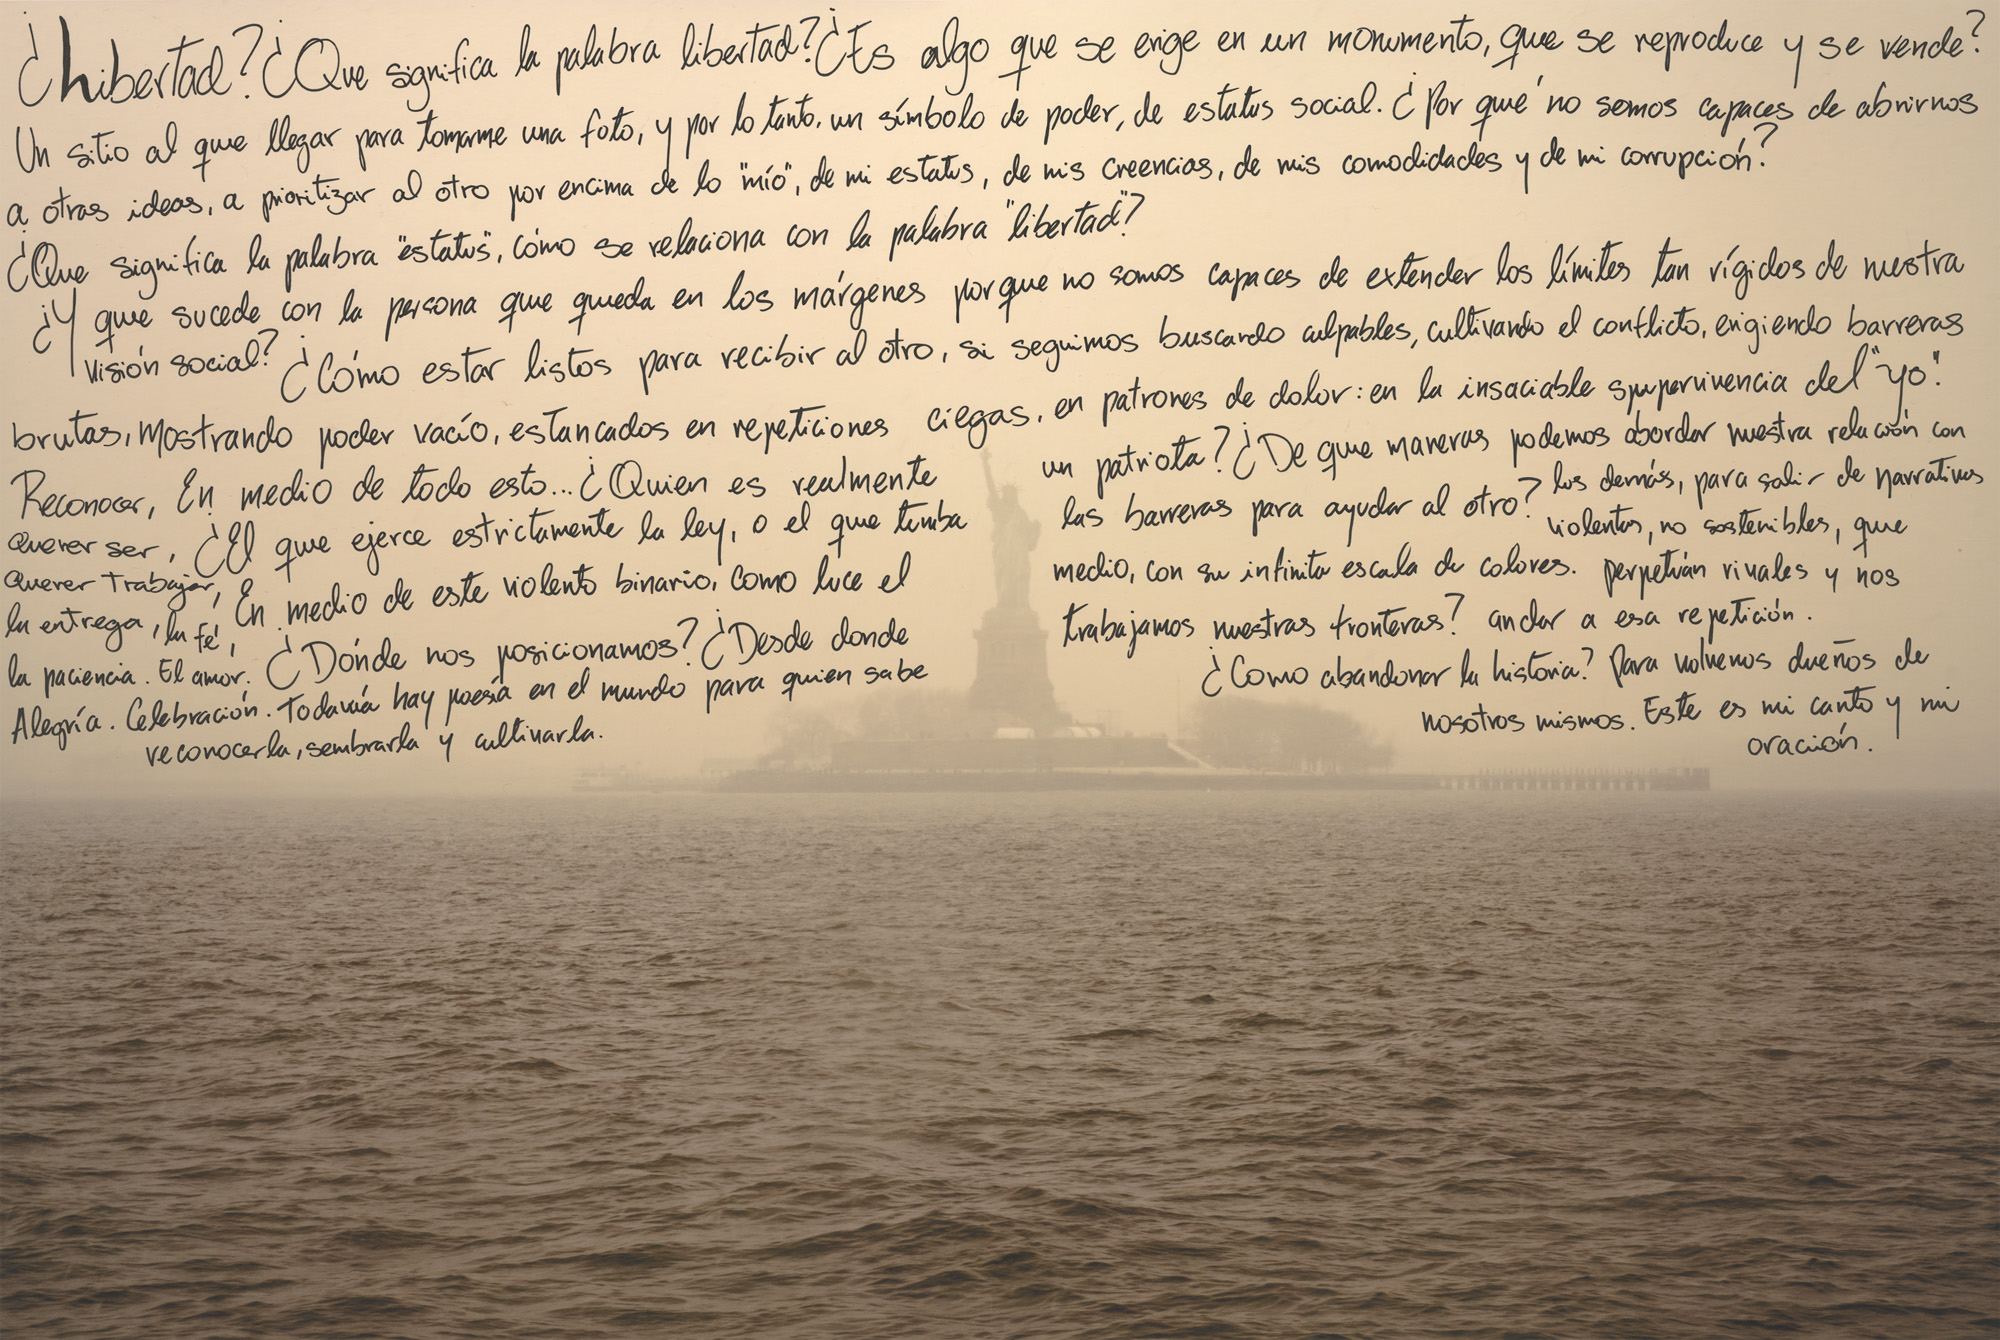 ¿Libertad? ¿Que significa la palabra libertad? ¿Es algo que se erige en un monumento, que se reproduce y se vende?
Un sitio al que llegar para tomarme una foto, y por lo tanto, un símbolo de poder, de estatus social. ¿Por qué no somos capaces de abrirnos
a otras ideas, a prioritizar al otro por encima de lo "mío", de mi estatus, de mis creencias, de mis comodidades y de mi corrupción?
¿Que significa la palabra "estatus", cómo se relaciona con la palabra "libertad"?
¿Y que sucede con la persona que queda en los márgenes porque no somos capaces de extender los límites tan rígidos de nuestra
visión social? ¿Cómo estar listos para recibir al otro, si seguimos buscando culpables, cultivando el conflicto, erigiendo barreras
brutas, mostrando poder vacío, estancados en repeticiones ciegas, en patrones de dolor: en la insaciable supervivencia del "yo".
En medio de todo esto... ¿Quien es realmente un patriota?
¿El que ejerce estrictamente la ley, o el que tumba las barreras para ayudar al otro?
En medio de este violento binario, como luce el medio, con su infinita escala de colores.
¿Dónde nos posicionamos? ¿Desde donde trabajamos nuestras fronteras?
¿De que maneras podemos abordar nuestra relación con
los demás, para salir de narrativas
violentas, no sostenibles, que
perpetúan rivales y nos
anclar a esa repetición.
¿Como abandonar la historia? Para volvernos dueños de
nosotros mismos. Este es mi canto y mi
oración.
Reconocer,
Querer ser,
Querer trabajar,
la entrega, la fé,
la paciencia. El amor.
Alegría. Celebración. Todavía hay poesía en el mundo para quien sabe
reconocerla, sembrarla y cultivarla.